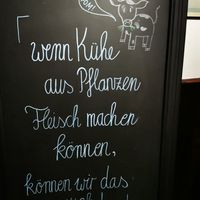 wenn Kühe
aus Pflanzen
Fleisch machen
können,
können wir das